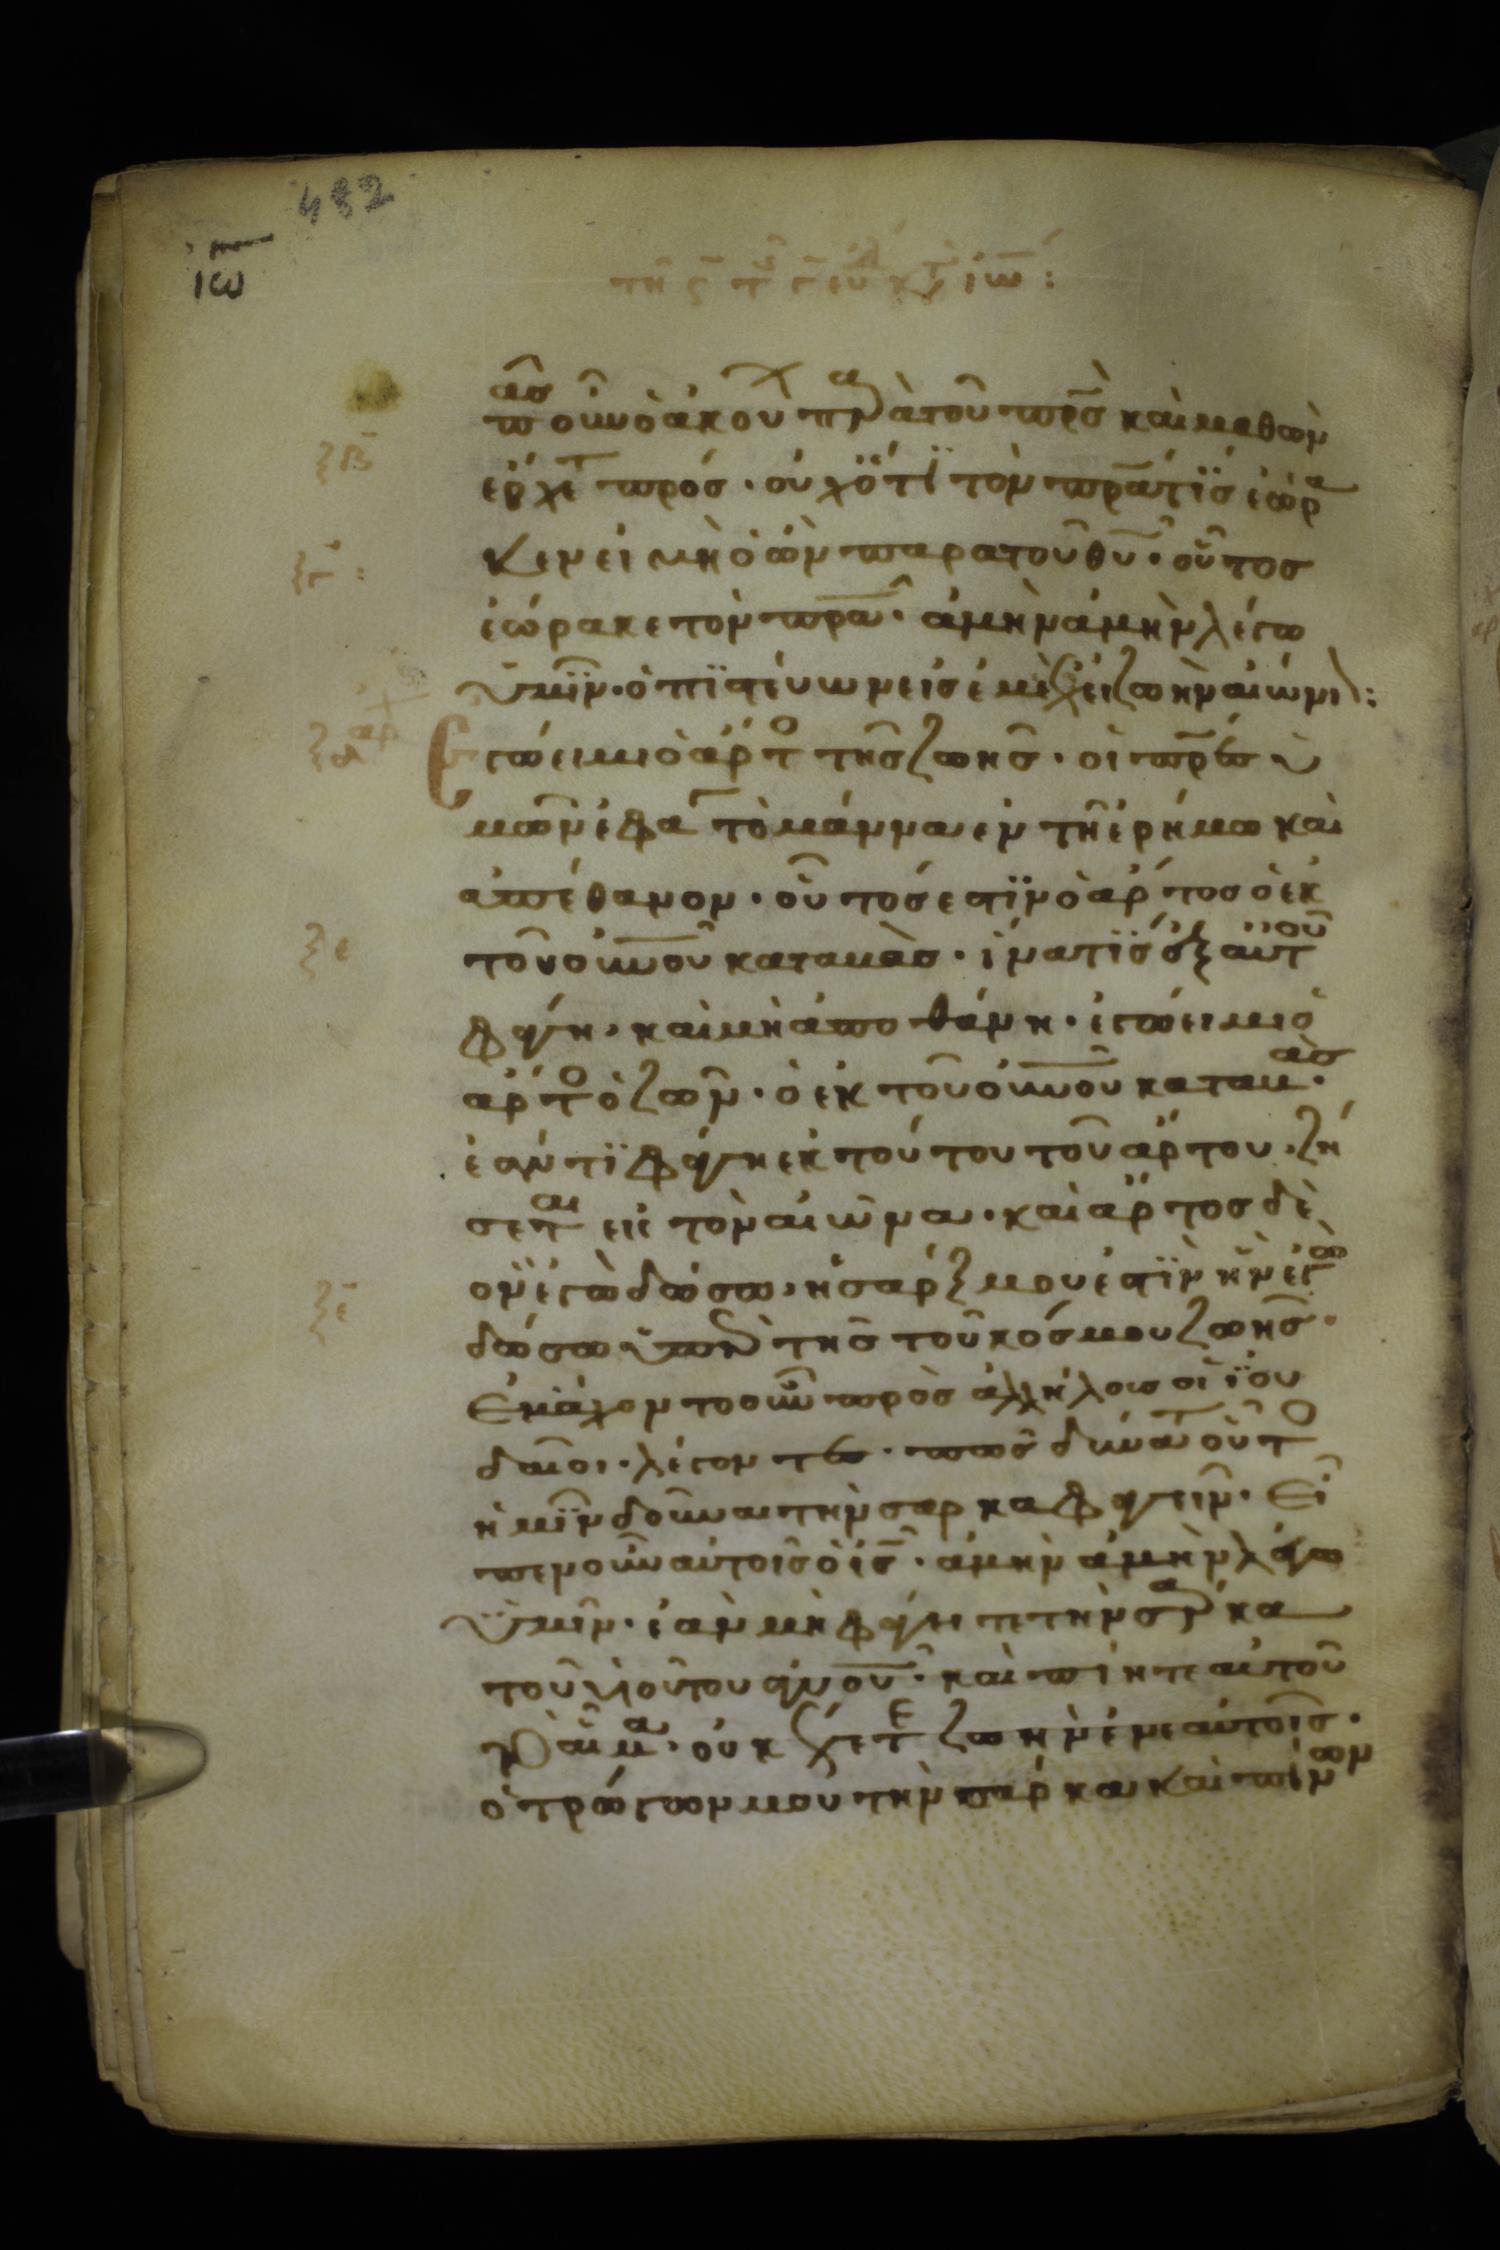 482
ιω
τῆ ϛ τ ϛ ευ κτ ιω :
πᾶσ οὖν ὁ ἀκούων παρὰ τοῦ πρ̅σ̅ καὶ μαθὼν
ξβ
ἔρχετ πρόσ · οὐχ ὅτι τὸν πρ̅α̅ τίσ ἑώρα
κεν εἰ μὴ ὁ ὢν παρὰ τοῦ θυ̅ · οὗτοσ
ξγ :
ἑώρακε τὸν πρ̅α̅ · ἀμὴν ἀμὴν λέγω
ὑμῖν · ὁ πιστεύων εἰσ ἐμὲ ἔχει ζωὴν αἰώνι :
ξδ
αρχ
Ἐγώ εἰμι ὁ ἄρτο τῆσ ζωῆσ · οἱ πρ̅εσ ὑ
μῶν ἔφαγ τὸ μάννα ἐν τῆ ἐρήμω καὶ
ἀπέθανον · οὗτόσ ἐστιν ὁ ἄρτοσ ὁ ἐκ
ξε
τοῦ οὐ̅νου καταβὰσ · ἵνα τίσ ἐξ αὐτοῦ
φάγη, καὶ μὴ ἀποθάνη · ἐγώ εἰμι ὁ
ἄρτο ὁ ζῶν · ὁ ἐκ τοῦ οὐ̅νου καταβὰσ ·
ἐάν τι φάγη ἐκ τούτου τοῦ ἄρτου, ζή
σεται εἰσ τὸν αἰῶνα · καὶ ἄρτοσ δὲ
ὃν ἐγὼ δώσω, ἡ σάρξ μου ἐστὶν ἣν ἐγὼ
ξϛ
δώσω ὑπὲρ τῆσ τοῦ κόσμου ζωῆσ ·
Ἐμάχοντο οὖν πρὸσ ἀλλήλουσ οἱ ἰου
δαῖοι · λέγοντεσ · πῶσ δύναται οὗτο
ἡμῖν δοῦναι τὴν σάρκα φαγεῖν · Εἶ
πεν οὖν αὐτοῖσ ὁ ισ̅ · ἀμὴν ἀμὴν λέγω
ὑμῖν · ἐὰν μὴ φάγητε τὴν σάρκα
τοῦ υἱοῦ τοῦ αν̅ου · καὶ πίητε αὐτοῦ
τὸ αἷμα · οὐκ ἔχετε ζωὴν ἐν ἑαυτοῖσ ·
ὁ τρώγων μου τὴν σάρκα καὶ πίνων